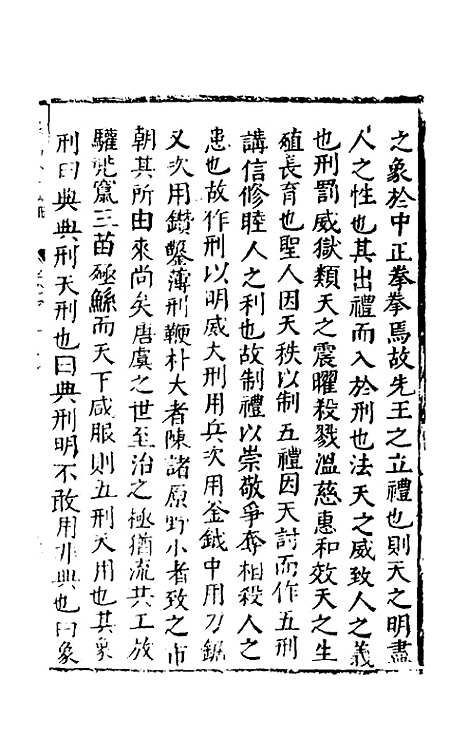 之象於中正拳拳焉故先王之立禮也則天之明盡
人之性也其出禮而入於刑也法天之威致人之義
也刑罰威獄類天之震曜殺戮溫慈惠和效天之生
殖長育也聖人因天秩以制五禮因天討而作五刑
講信修睦人之利也故制禮以崇敬爭奪相殺人之
患也故作刑以明威大刑用兵次用釜鉞中用刀鋸
又次用鑽鑿薄刑鞭朴大者陳諸原野小者致之市
朝其所由來尚矣唐虞之世至治之極猶流共工放
驩兜竄三苗殛鯀而天下咸服則五刑天用也其象
刑曰典典刑天刑也曰典刑明不敢用非典也曰象